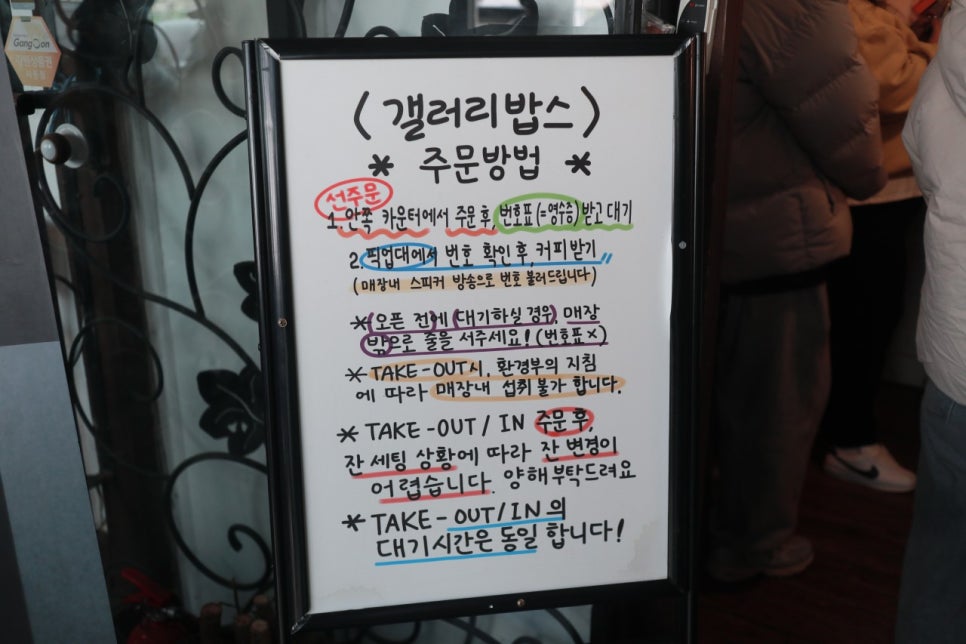 GangOan
지역상품권
사용처
(갤러리밥스)
* 주문방법 *
선주문
1. 안쪽 카운터에서 주문 후, 번호표(=영수증)받고 대기
2. 픽업대에서 번호 확인 후, 커피 받기
(매장내 스피커 방송으로 번호 불러드립니다)
* (오픈 전)에 (대기하실 경우) 매장
밖으로 줄을 서주세요! (번호표×)
* TAKE-OUT시, 환경부의 지침
에 따라 매장내 섭취 불가 합니다.
* TAKE-OUT / IN 주문 후,
잔 세팅 상황에 따라 잔 변경이
어렵습니다. 양해부탁드려요
* TAKE-OUT/IN의
대기시간은 동일 합니다!